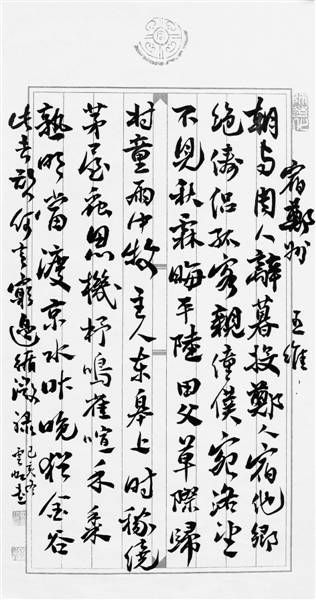 宿鄭州 王維
朝与周人辭暮投鄭人宿他鄉
絕儔侶孤客親僮僕宛洛望
不見秋霖晦平陸田父草際歸
村童雨中牧主人東皋上時稼繞
茅屋蟲思機杼鳴雀喧禾黍
熟明當渡京水昨晚猶金谷
此去欲何言窮邊循微祿
己亥冬